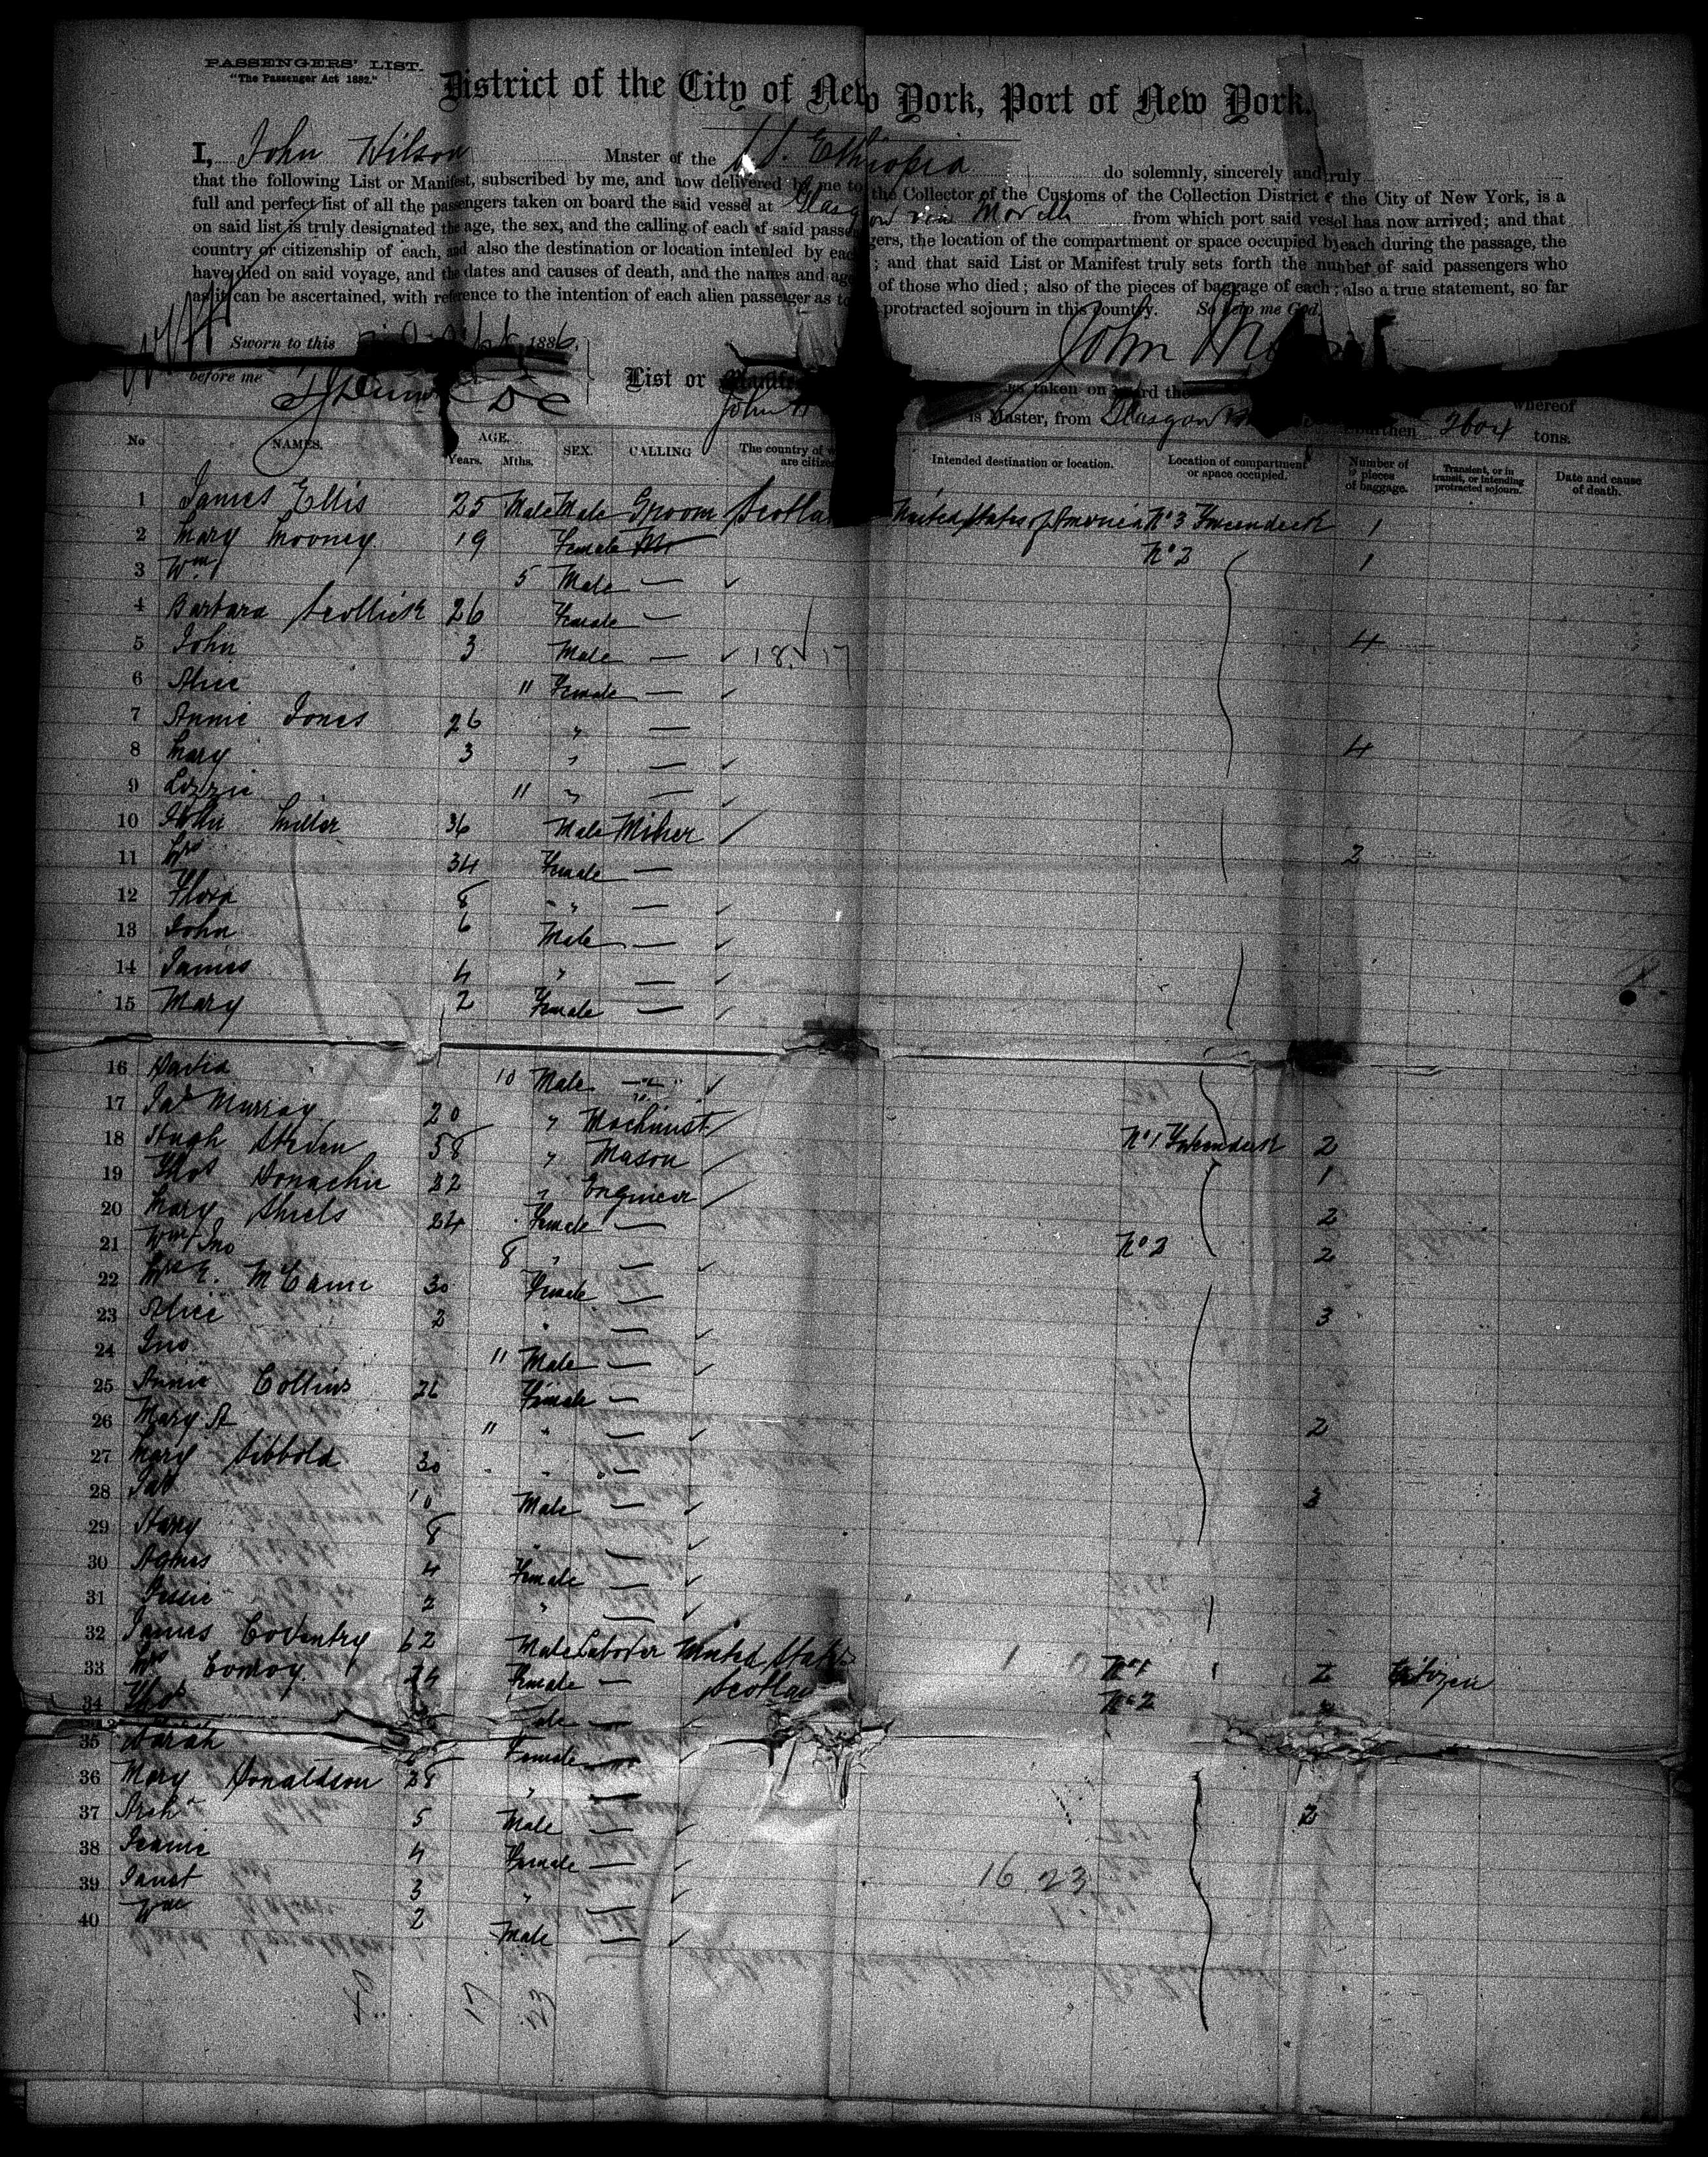 PASSENGERS' LIST.
"The Passenger Act 1882."
District of the City of New York, Port of New York.
I, John Wilson Master of the S.S. Ethiopia do solemnly, sincerely and truly
that the following List or Manifest, subscribed by me, and now delivered by me to the Collector of the Customs of the Collection District of the City of New York, is a
full and perfect list of all the passengers taken on board the said vessel at Glasgow via Moville from which port said vessel has now arrived; and that
on said list is truly designated the age, the sex, and the calling of each of said passengers, the location of the compartment or space occupied by each during the passage, the
country of citizenship of each, and also the destination or location intended by each; and that said List or Manifest truly sets forth the number of said passengers who
have died on said voyage, and the dates and causes of death, and the names and ages of those who died; also of the pieces of baggage of each; also a true statement, so far
as it can be ascertained, with reference to the intention of each alien passenger as to protracted sojourn in this country. So help me God.
Sworn to this 1886, John
before me List or taken on board the
John is Master, from Glasgow whereof
burthen tons.
No NAMES. AGE. Years. Mths. SEX. CALLING The country of are citizens Intended destination or location. Location of compartment or space occupied. Number of pieces of baggage. Transient, or in transit, or intending protracted sojourn. Date and cause of death.
1 James Ellis 25 Male Male Groom Scotland United States of America No 3 1
2 Mary Mooney 19 Female No 2 1
3 Wm 5 Male —
4 Barbara 26 Female — 4
5 John 3 Male — 18 17
6 Alice 11 Female —
7 Annie Jones 26 " — 4
8 Mary 3 " —
9 Lizzie 11 " —
10 John Miller 36 Male Miner 2
11 Mrs 34 Female —
12 Flora 8 " —
13 John 6 Male —
14 James 4 " —
15 Mary 2 Female —
16 David 10 Male —
17 Jas Murray 20 " Machinist No 1 2
18 Hugh Steven 58 " Mason 1
19 Thos Donachie 22 " Engineer 2
20 Mary Shiels 24 Female — No 2 2
21 Wm Jno 8 " —
22 Mrs E. McCann 30 Female — 3
23 Alice 2 " —
24 Jno 11 Male —
25 Annie Collins 26 Female — 2
26 Mary A 11 " —
27 Mary Sibbold 30 " — 3
28 Jas 10 Male —
29 Harry 8 " —
30 Agnes 4 Female —
31 Jessie 2 " —
32 James Coventry 62 Male Laborer United States No 1 2 Citizen
33 Mrs Conroy 24 Female — Scotland No 2
34 Thos Male —
35 Sarah Female —
36 Mary Donaldson 28 " — 2
37 Archd 5 Male —
38 Jeanie 4 Female — 16 23
39 Janet 3 " —
40 Wm 2 Male —
17 23